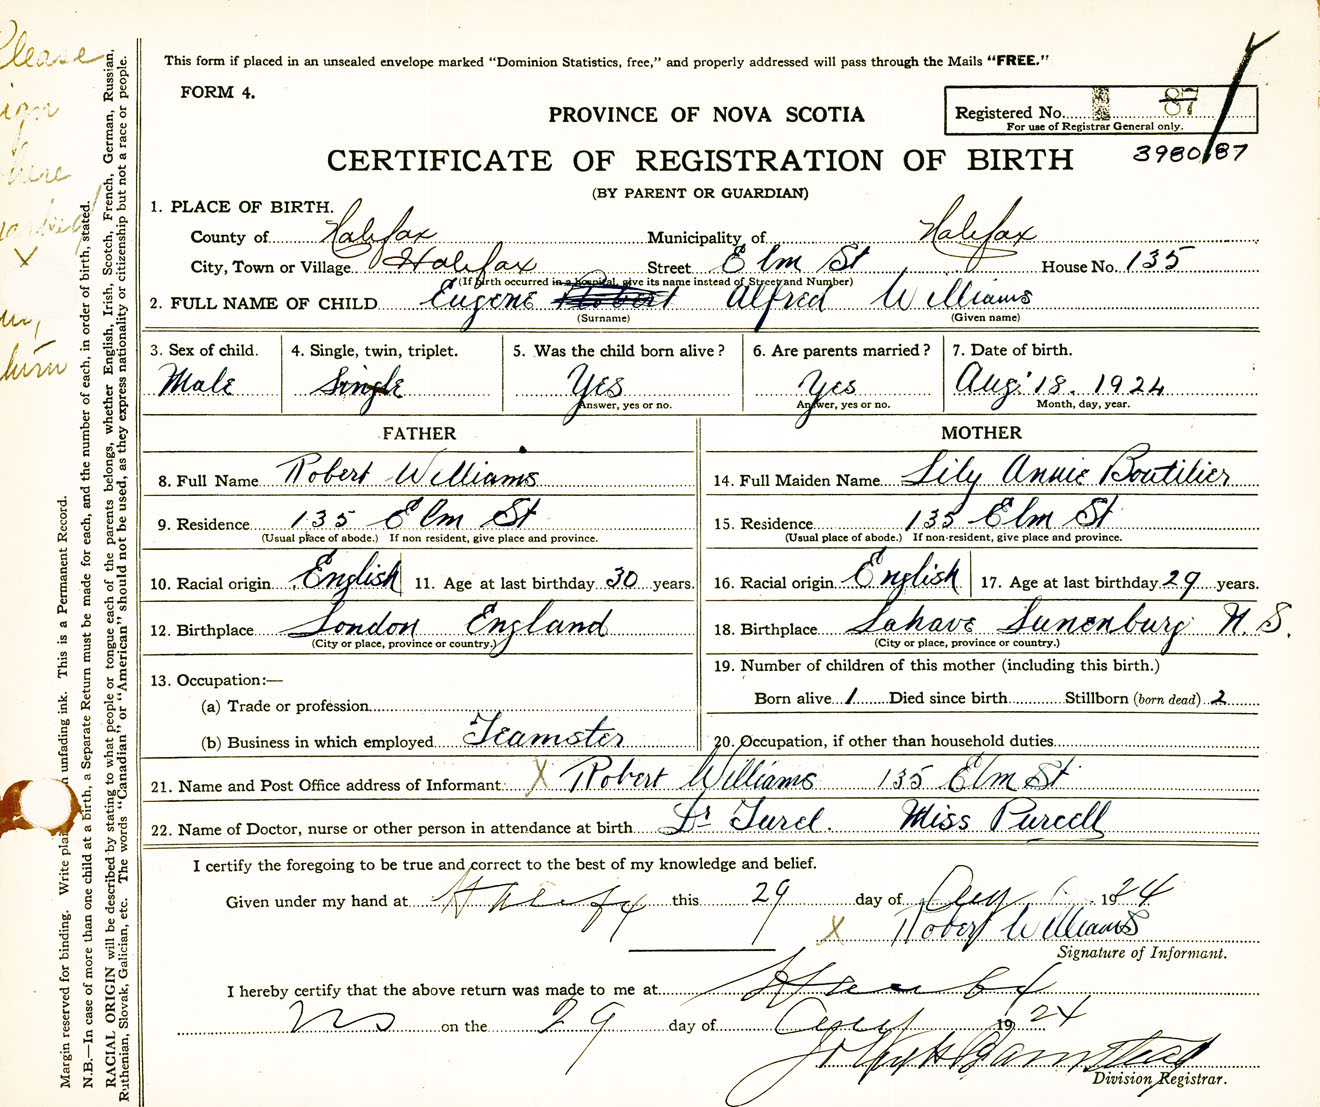 This form if placed in an unsealed envelope marked "Dominion Statistics, free," and properly addressed will pass through the Mails "FREE."
FORM 4.
PROVINCE OF NOVA SCOTIA
Registered No. 87
For use of Registrar General only.
3980/87
CERTIFICATE OF REGISTRATION OF BIRTH
(BY PARENT OR GUARDIAN)
1. PLACE OF BIRTH.
County of Halifax Municipality of Halifax
City, Town or Village Halifax Street Elm St House No. 135
(If birth occurred in a hospital, give its name instead of Street and Number)
2. FULL NAME OF CHILD Eugene Robert Alfred Williams
(Surname) (Given name)
3. Sex of child. 4. Single, twin, triplet. 5. Was the child born alive? 6. Are parents married? 7. Date of birth.
Male Single Yes Yes Aug. 18. 1924
Answer, yes or no. Answer, yes or no. Month, day, year.
FATHER MOTHER
8. Full Name Robert Williams
9. Residence 135 Elm St
(Usual place of abode.) If non resident, give place and province.
10. Racial origin English 11. Age at last birthday 30 years.
12. Birthplace London England
(City or place, province or country.)
13. Occupation:—
(a) Trade or profession
(b) Business in which employed Teamster
14. Full Maiden Name Lily Annie Boutilier
15. Residence 135 Elm St
(Usual place of abode.) If non-resident, give place and province.
16. Racial origin English 17. Age at last birthday 29 years.
18. Birthplace Lahave Lunenburg N. S.
(City or place, province or country.)
19. Number of children of this mother (including this birth.)
Born alive 1 Died since birth Stillborn (born dead) 2
20. Occupation, if other than household duties
21. Name and Post Office address of Informant X Robert Williams 135 Elm St
22. Name of Doctor, nurse or other person in attendance at birth Dr Turel. Miss Purcell
I certify the foregoing to be true and correct to the best of my knowledge and belief.
Given under my hand at Halifx this 29 day of Aug 1924
X Robert Williams
Signature of Informant.
I hereby certify that the above return was made to me at
NS on the 29 day of Aug 1924
Division Registrar.
Please
sign
here
X
Margin reserved for binding. Write plainly in unfading ink. This is a Permanent Record.
N.B.—In case of more than one child at a birth, a Separate Return must be made for each, and the number of each, in order of birth, stated.
RACIAL ORIGIN will be described by stating to what people or tongue each of the parents belongs, whether English, Irish, Scotch, French, German, Russian,
Ruthenian, Slovak, Galician, etc. The words "Canadian" or "American" should not be used, as they express nationality or citizenship but not a race or people.